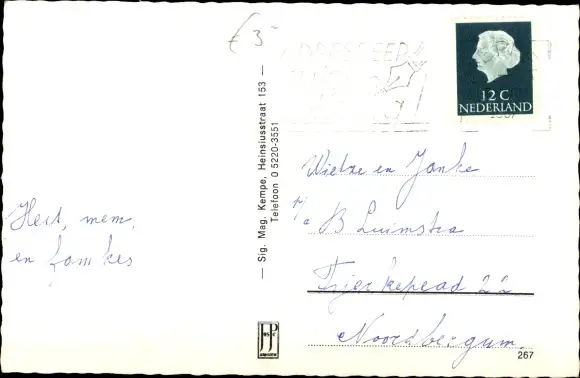 € 3-
12 C
NEDERLAND
Sig. Mag. Kempe, Heinsiusstraat 153
Telefoon 0 5220-3551
Heit, mem,
en famkes
Wietze en Janke
p/a B Luimstra
22
Noordbergum.
JP
267